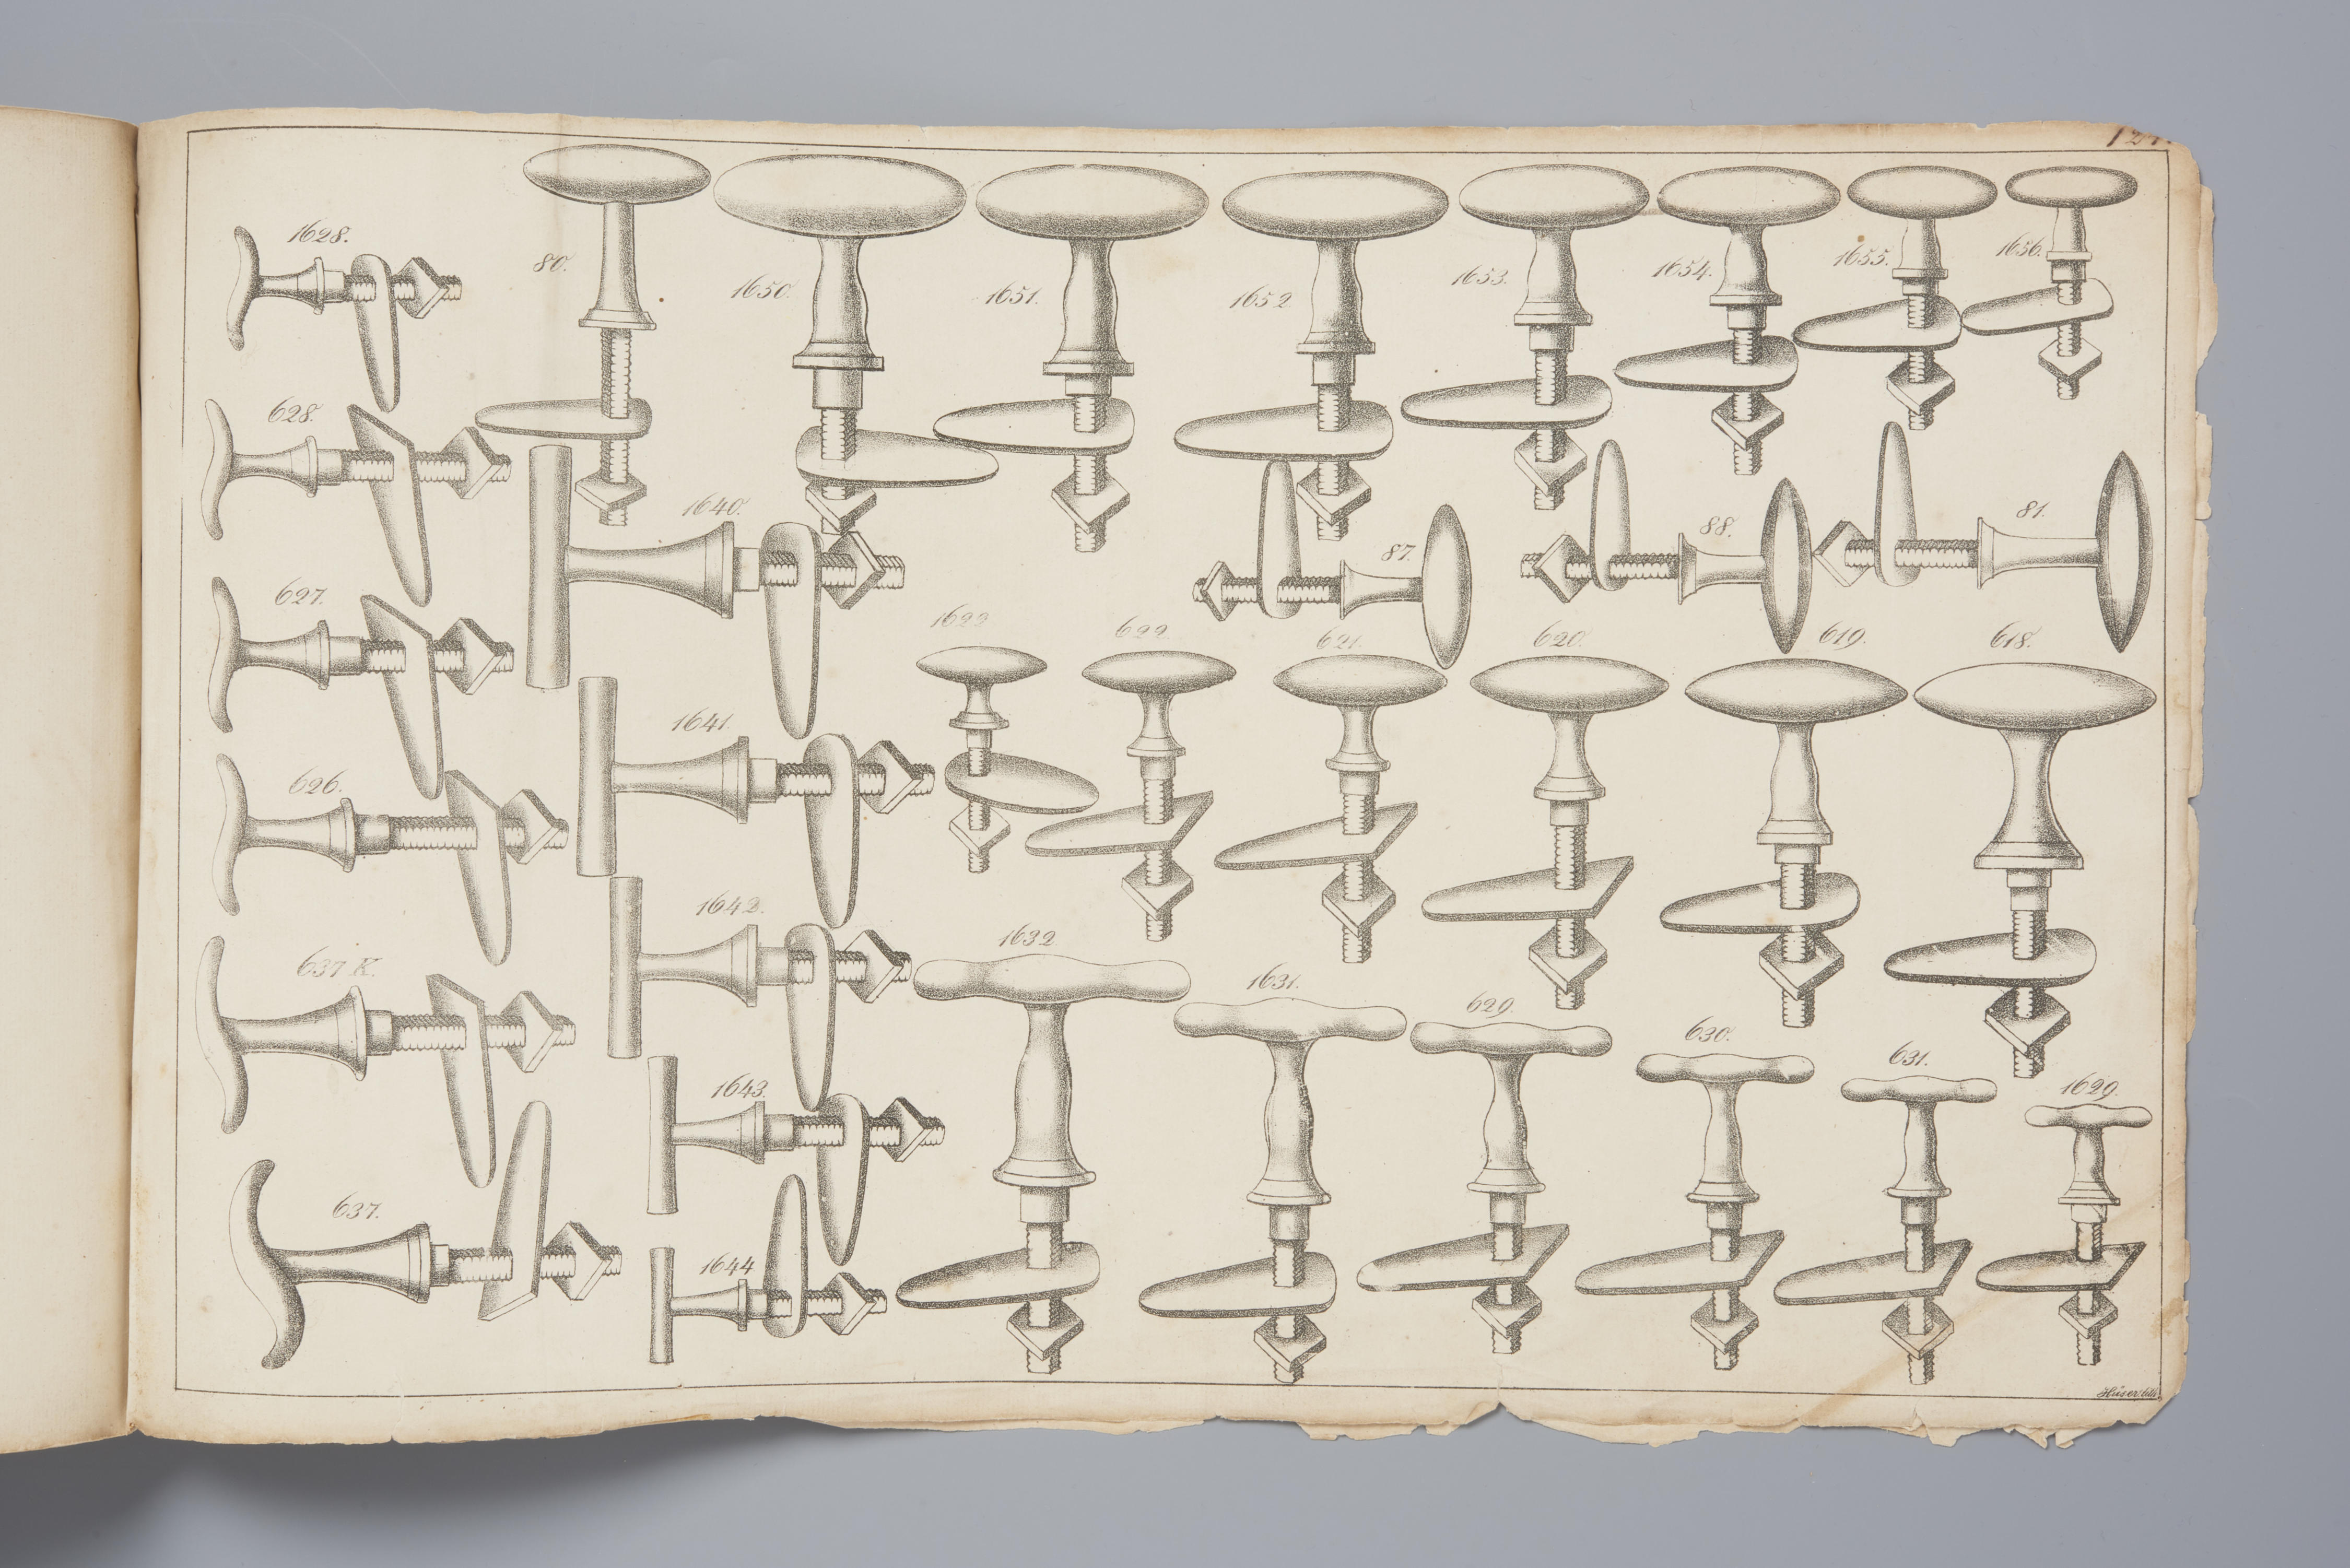 1628.
80.
1650.
1651.
1652
1653.
1654.
1655.
1656.
628.
1640.
87.
88.
81.
627.
1641.
622.
621.
620.
619.
618.
626.
1642.
637 K.
1632
1631.
629.
630.
631.
1629.
1643.
637.
1644